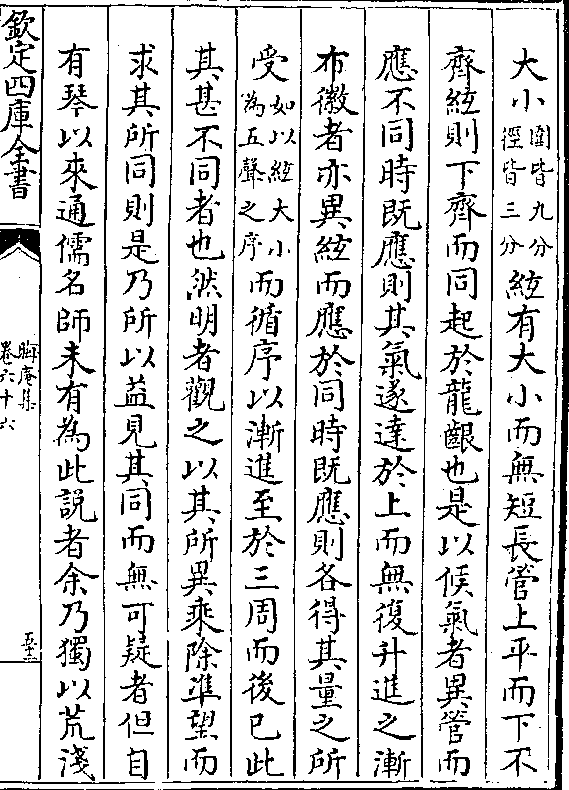 大小圍皆九分徑皆三分絃有大小而無短長管上平而下不
齊絃則下齊而同起於龍齦也是以候氣者異管而
應不同時既應則其氣遂達於上而無復升進之漸
布徽者亦異絃而應於同時既應則各得其量之所
受如以絃大小為五聲之序而循序以漸進至於三周而後已此
其甚不同者也然明者觀之以其所異乘除準望而
求其所同則是乃所以益見其同而無可疑者但自
有琴以來通儒名師未有為此説者余乃獨以荒淺
欽定四庫全書
晦庵集
卷六十六